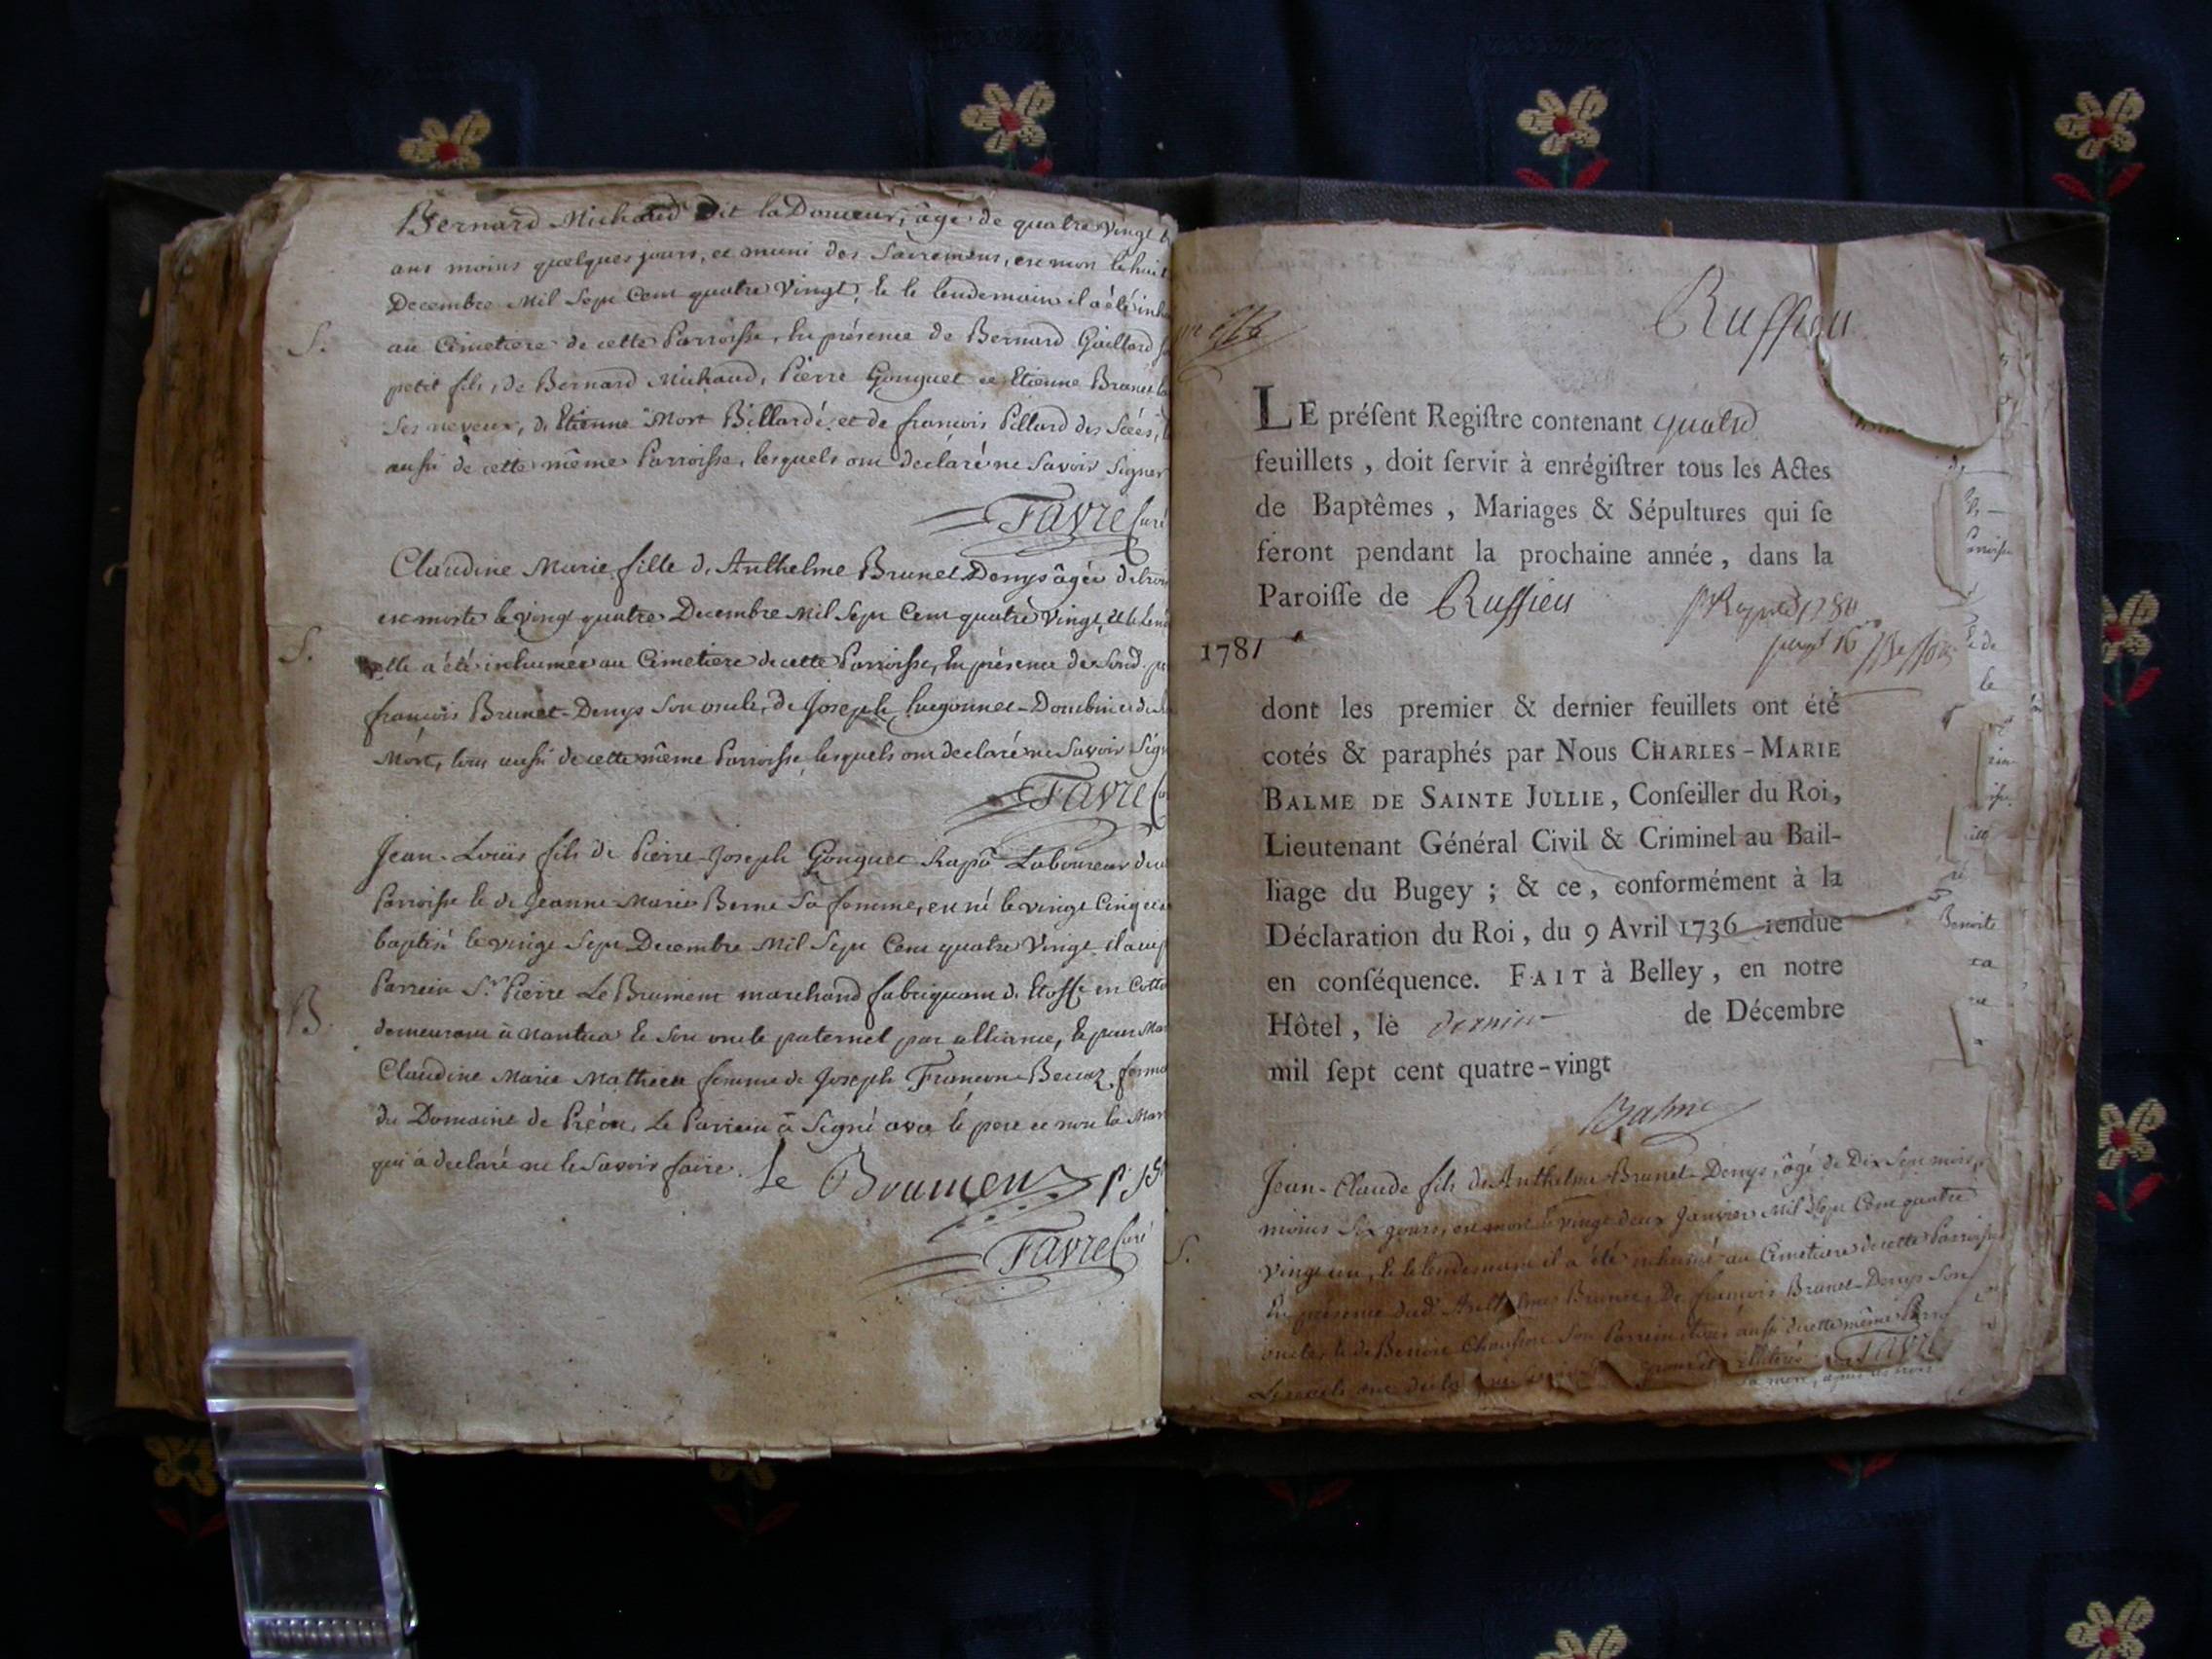 Bernard Michaud Dit la Douceur, âgé de quatre vingt
ans moins quelques jours, et muni des Sacremens, est mort le huit
Decembre Mil Sept Cent quatre Vingt, Et le lendemain il a été inh
S.
au Cimetiere de cette Parroisse, En présence de Bernard Gaillard
petit fils, de Bernard Michaud, Pierre Gonguet et Etienne Brunet
Ses neveux, d'Etienne Mort Billardé, et de françois Pillard des
aussi de cette même Parroisse, lesquels ont declaré ne Savoir Signer
Favre Curé
Claudine Marie fille d'Anthelme Brunet Denys âgée de trois
est morte le vingt quatre Decembre Mil Sept Cent quatre Vingt, et le lend
S.
elle a été inhumée au Cimetiere de cette Parroisse, En présence de Sond. pe
françois Brunet-Denys Son oncle, de Joseph hugonnet-Dombin et de
Mort, tous aussi de cette même Parroisse, lesquels ont declaré ne Savoir Sign
Favre
Jean-Loüis fils de Pierre-Joseph Gonguet Rapo Laboureur de
Parroisse Et de Jeanne Marie Berne Sa femme, est né le vingt Cinq et a
baptisé le vingt Sept Decembre Mil Sept Cent quatre Vingt. il a eu p
B.
Parrein Sr. Pierre Le Brument marchand fabriquant d'Etoffe en Cotto
demeurant à Nantua Et Son oncle paternel par alliance, Et pour Mar
Claudine Marie Mathieu femme de Joseph Françon-Beccaz ferm
du Domaine de Préon, Le Parrein a Signé avec le pere et non la Mar
qui a declaré ne le Savoir faire.
Le Brument
Favre Curé
Ruffieu
LE préſent Regiſtre contenant quatre
feuillets, doit ſervir à enrégiſtrer tous les Actes
de Baptêmes, Mariages & Sépultures qui ſe
feront pendant la prochaine année, dans la
Paroiſſe de Ruffieu
1781
dont les premier & dernier feuillets ont été
cotés & paraphés par Nous CHARLES-MARIE
BALME DE SAINTE JULLIE, Conſeiller du Roi,
Lieutenant Général Civil & Criminel au Bail-
liage du Bugey; & ce, conformément à la
Déclaration du Roi, du 9 Avril 1736 rendue
en conſéquence. FAIT à Belley, en notre
Hôtel, le dernier de Décembre
mil ſept cent quatre-vingt
Balme
Jean-Claude fils d'Anthelme Brunet-Denys, âgé de Dix Sept mois,
moins Six jours, est mort le vingt deux Janvier Mil Sept Cent quatre
S.
Vingt un, Et le lendemain il a été inhumé au Cimetiere de cette Parroisse
En présence dud. Anthelme Brunet, De françois Brunet-Denys Son
oncle, Et de Benoit Son Parrein, tous aussi de cette même Parro
Lesquels ont
Favre